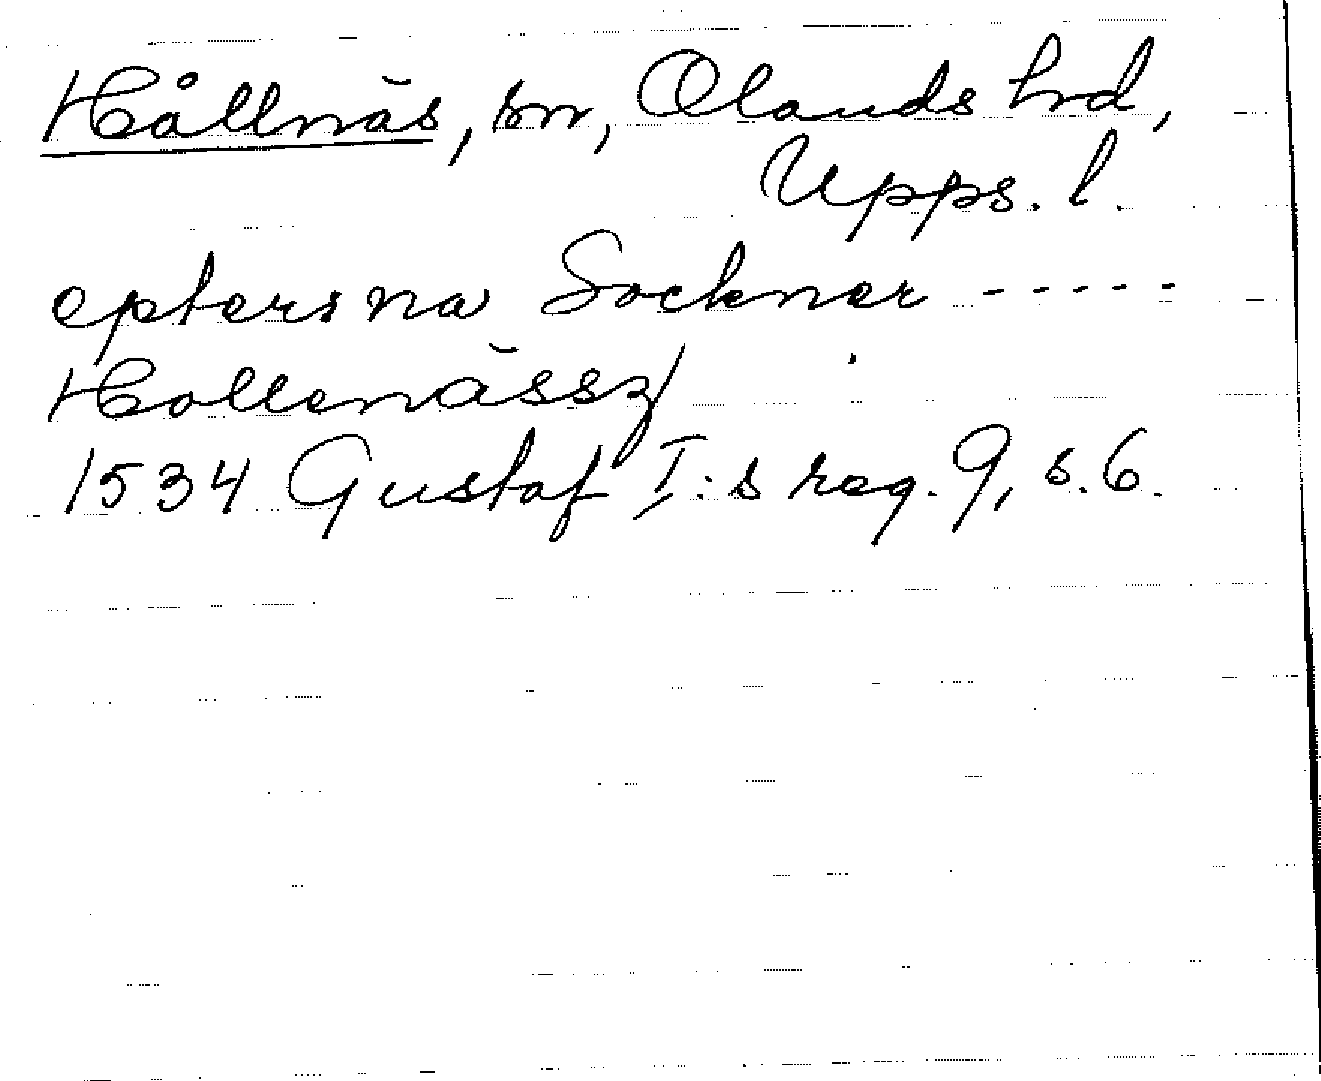 Hållnäs, sn, Olands hrd,
Upps. l.
eptersna Sockner -----
Hollenässz/
1534 Gustaf I:s reg. 9, s. 6.